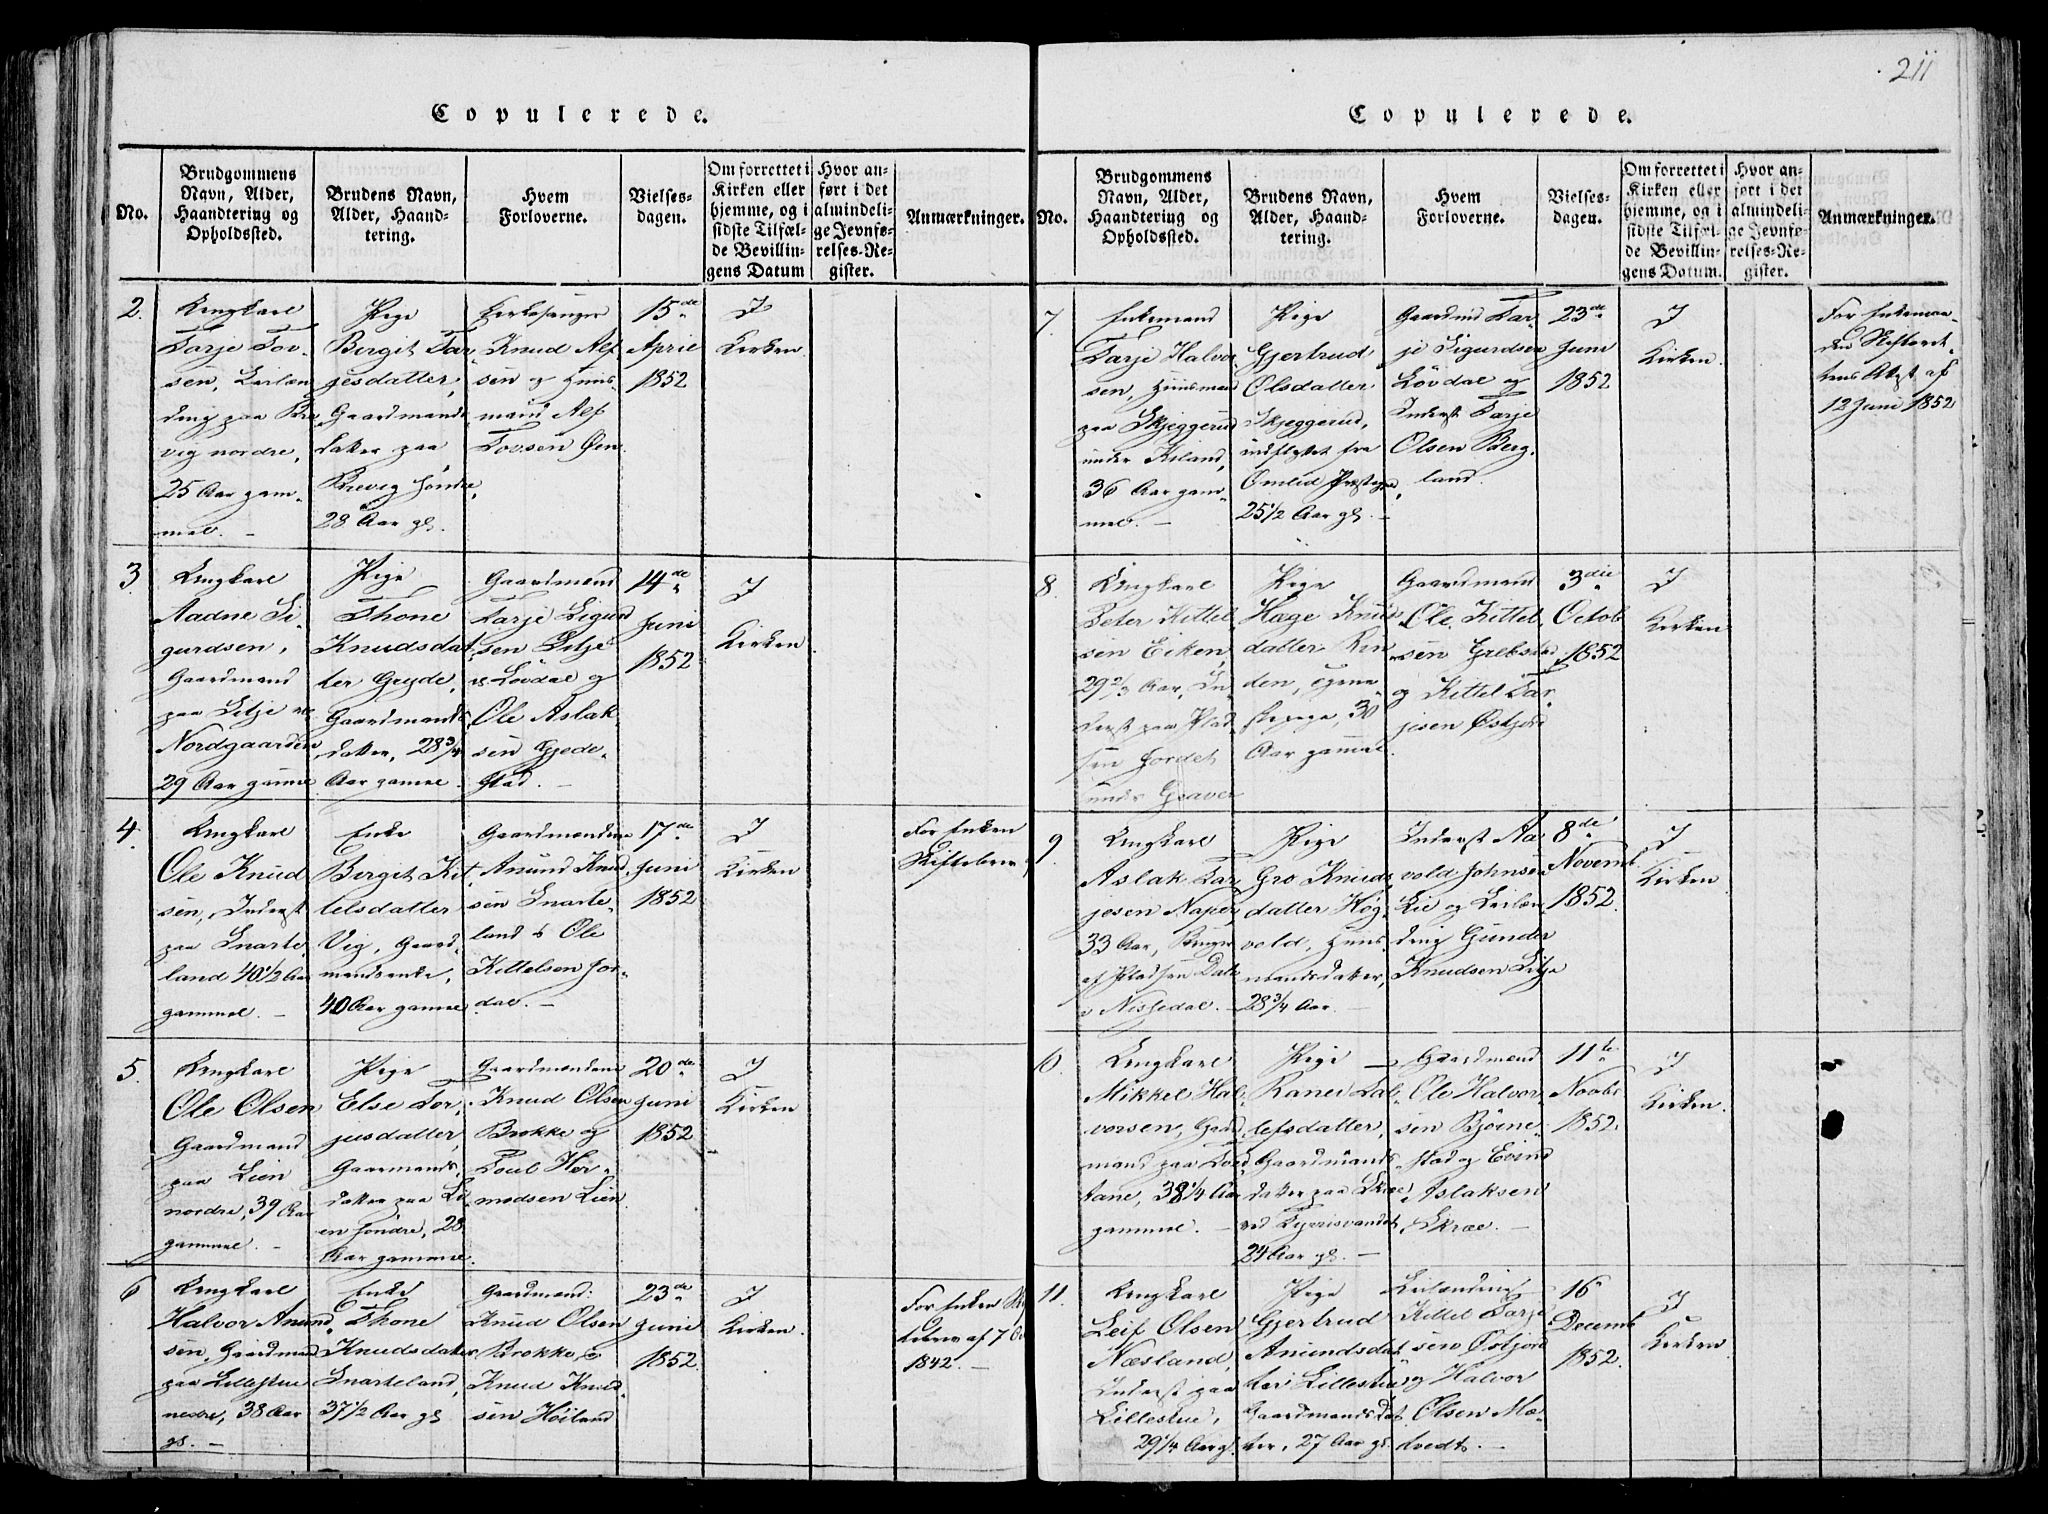 211
Copulerede.
No.
Brudgommens
Navn, Alder,
Haandtering og
Opholdssted.
Brudens Navn,
Alder, Haand-
tering.
Hvem
Forloverne.
Vielses-
dagen.
Om forrettet i
Kirken eller
hjemme, og i
sidste Tilfæl-
de Bevillin-
gens Datum
Hvor an-
ført i det
almindeli-
ge Jevnfø-
relses-Re-
gister.
Anmærkninger.
2.
Ungkarl
Tarje Tov-
sen, Leilæn-
ding paa
vig nordre,
25 Aar gam-
mel. -
Pige
Birgit Tar-
jesdatter,
Gaardmands
datter paa
søndre,
28 Aar gl.
Kirkesanger
Knud Alf-
sen og Huus-
mand Alf
Tovsen Øen
15de
April
1852
I
Kirken
3
Ungkarl
Aadne Si-
gurdsen,
Gaardmand
paa Litje
Nordgaarden
29 Aar gammel
Pige
Thone
Knudsdat-
ter Gryde,
Gaardmands
datter, 28 3/4
Aar gammel
Gaardmænd
Tarje Sigurd
sen Litje
Løvdal og
Ole Aslak-
sen Gjede-
stad. -
14de
Juni
1852
I
Kirken
4.
Ungkarl
Ole Knud
sen, Inderst
paa Snarte-
land 40 1/2 Aar
gammel. -
Enke
Birgit Kit-
telsdatter
Vig, Gaard-
mandsenke,
40 Aar gammel
Gaardmændene
Anund Knud
sen Snarte-
land & Ole
Kittelsen For-
dal. -
17de
Juni
1852
I
Kirken
For Enken
Skiftebrev
5.
Ungkarl
Ole Olsen
Gaardmand
paa Lien
nordre, 39 Aar
gammel. -
Pige
Else Tor-
jusdatter,
Gaarmands-
datter paa Li-
en søndre, 28
Aar gammel.
Gaardmændene
Knud Olsen
Brokke og
Poul Her-
modsen Lien
20de
Juni
1852
I
Kirken
6
Ungkarl
Halvor Anund
sen, Gaardmand
paa Lillestue
nedre, 38 Aar
gl. -
Enke
Thone
Knudsdatter
Snarteland,
37 1/2 Aar gl
Gaardmænd:
Knud Olsen
Brokke &
Knud Knud-
sen Höiland
23de
Juni
1852.
I
Kirken.
For Enken
af 7
1842. -
Copulerede.
No.
Brudgommens
Navn, Alder,
Haandtering og
Opholdssted.
Brudens Navn,
Alder, Haand-
tering.
Hvem
Forloverne.
Vielses-
dagen.
Om forrettet i
Kirken eller
hjemme, og i
sidste Tilfæl-
de Bevillin-
gens Datum.
Hvor an-
ført i det
almindeli-
ge Jevnfø-
relses-Re-
gister.
Anmærkninger.
7.
Enkemand
Tarje Halvor
sen, Huusmand
paa Skjeggerud
under Kiland,
36 Aar gam-
mel. -
Pige
Gjertrud
Olsdatter
Skjeggerud,
indflyttet fra
Omlid Præstegje
25 1/2 Aar gl. -
Gaardmd Tar-
je Sigurdsen
Løvdal og
Inderst Tarje
Olsen Berg-
land.
23de
Juni
1852
I
Kirken.
For Enkeman-
den Skifteret-
tens Attest af
12 Juni 1852
8.
Ungkarl
Peter Kittel-
sen Eiken,
29 2/3 Aar, In-
derst paa Plad-
sen Jordet
under Graver
Pige
Hæge Knuds
datter Rin-
den,
30
Aar gammel.
Gaardmænd
Ole Kittel-
sen Grebstad
og Kittel Tar-
jesen Østjord
3die
Octob
1852
I
Kirken
9
Ungkarl
Aslak Tar-
jesen Naper,
33 Aar, Bruger
af Pladsen Dale
i Nissedal. -
Pige
Gro Knuds
datter Høg-
vold, Huus-
mandsdatter,
28 3/4 Aar. -
Inderst Aa
vold Johnsen
Lie og Leilæn-
ding Gunder
Knudsen Litje
8de
Novemb
1852.
I
Kirken
10.
Ungkarl
Mikkel Hal-
vorsen, Gaard
mand paa Tved
tane, 38 1/4 Aar
gammel. -
Pige
Ranei Dal-
lefsdatter,
Gaardmands
datter paa Skræ
ved Kjerisvandet
24 Aar gl. -
Gaardmænd
Ole Halvor-
sen Björne-
stad og Evind
Aslaksen
Skræe. -
11te
Novbr
1852.
I
Kirken.
11.
Ungkarl
Leif Olsen
Næsland,
Inderst paa
Lillestue,
29 1/4 Aar gl.
Pige
Gjertrud
Anundsdat-
ter Lillestue,
Gaardmandsdat-
ter, 27 Aar gl.
Leilænding
Kittel Tarje
sen Østjord
og Halvor
Olsen Mæ-
tvedt. -
16
Decemb
1852.
I
Kirken